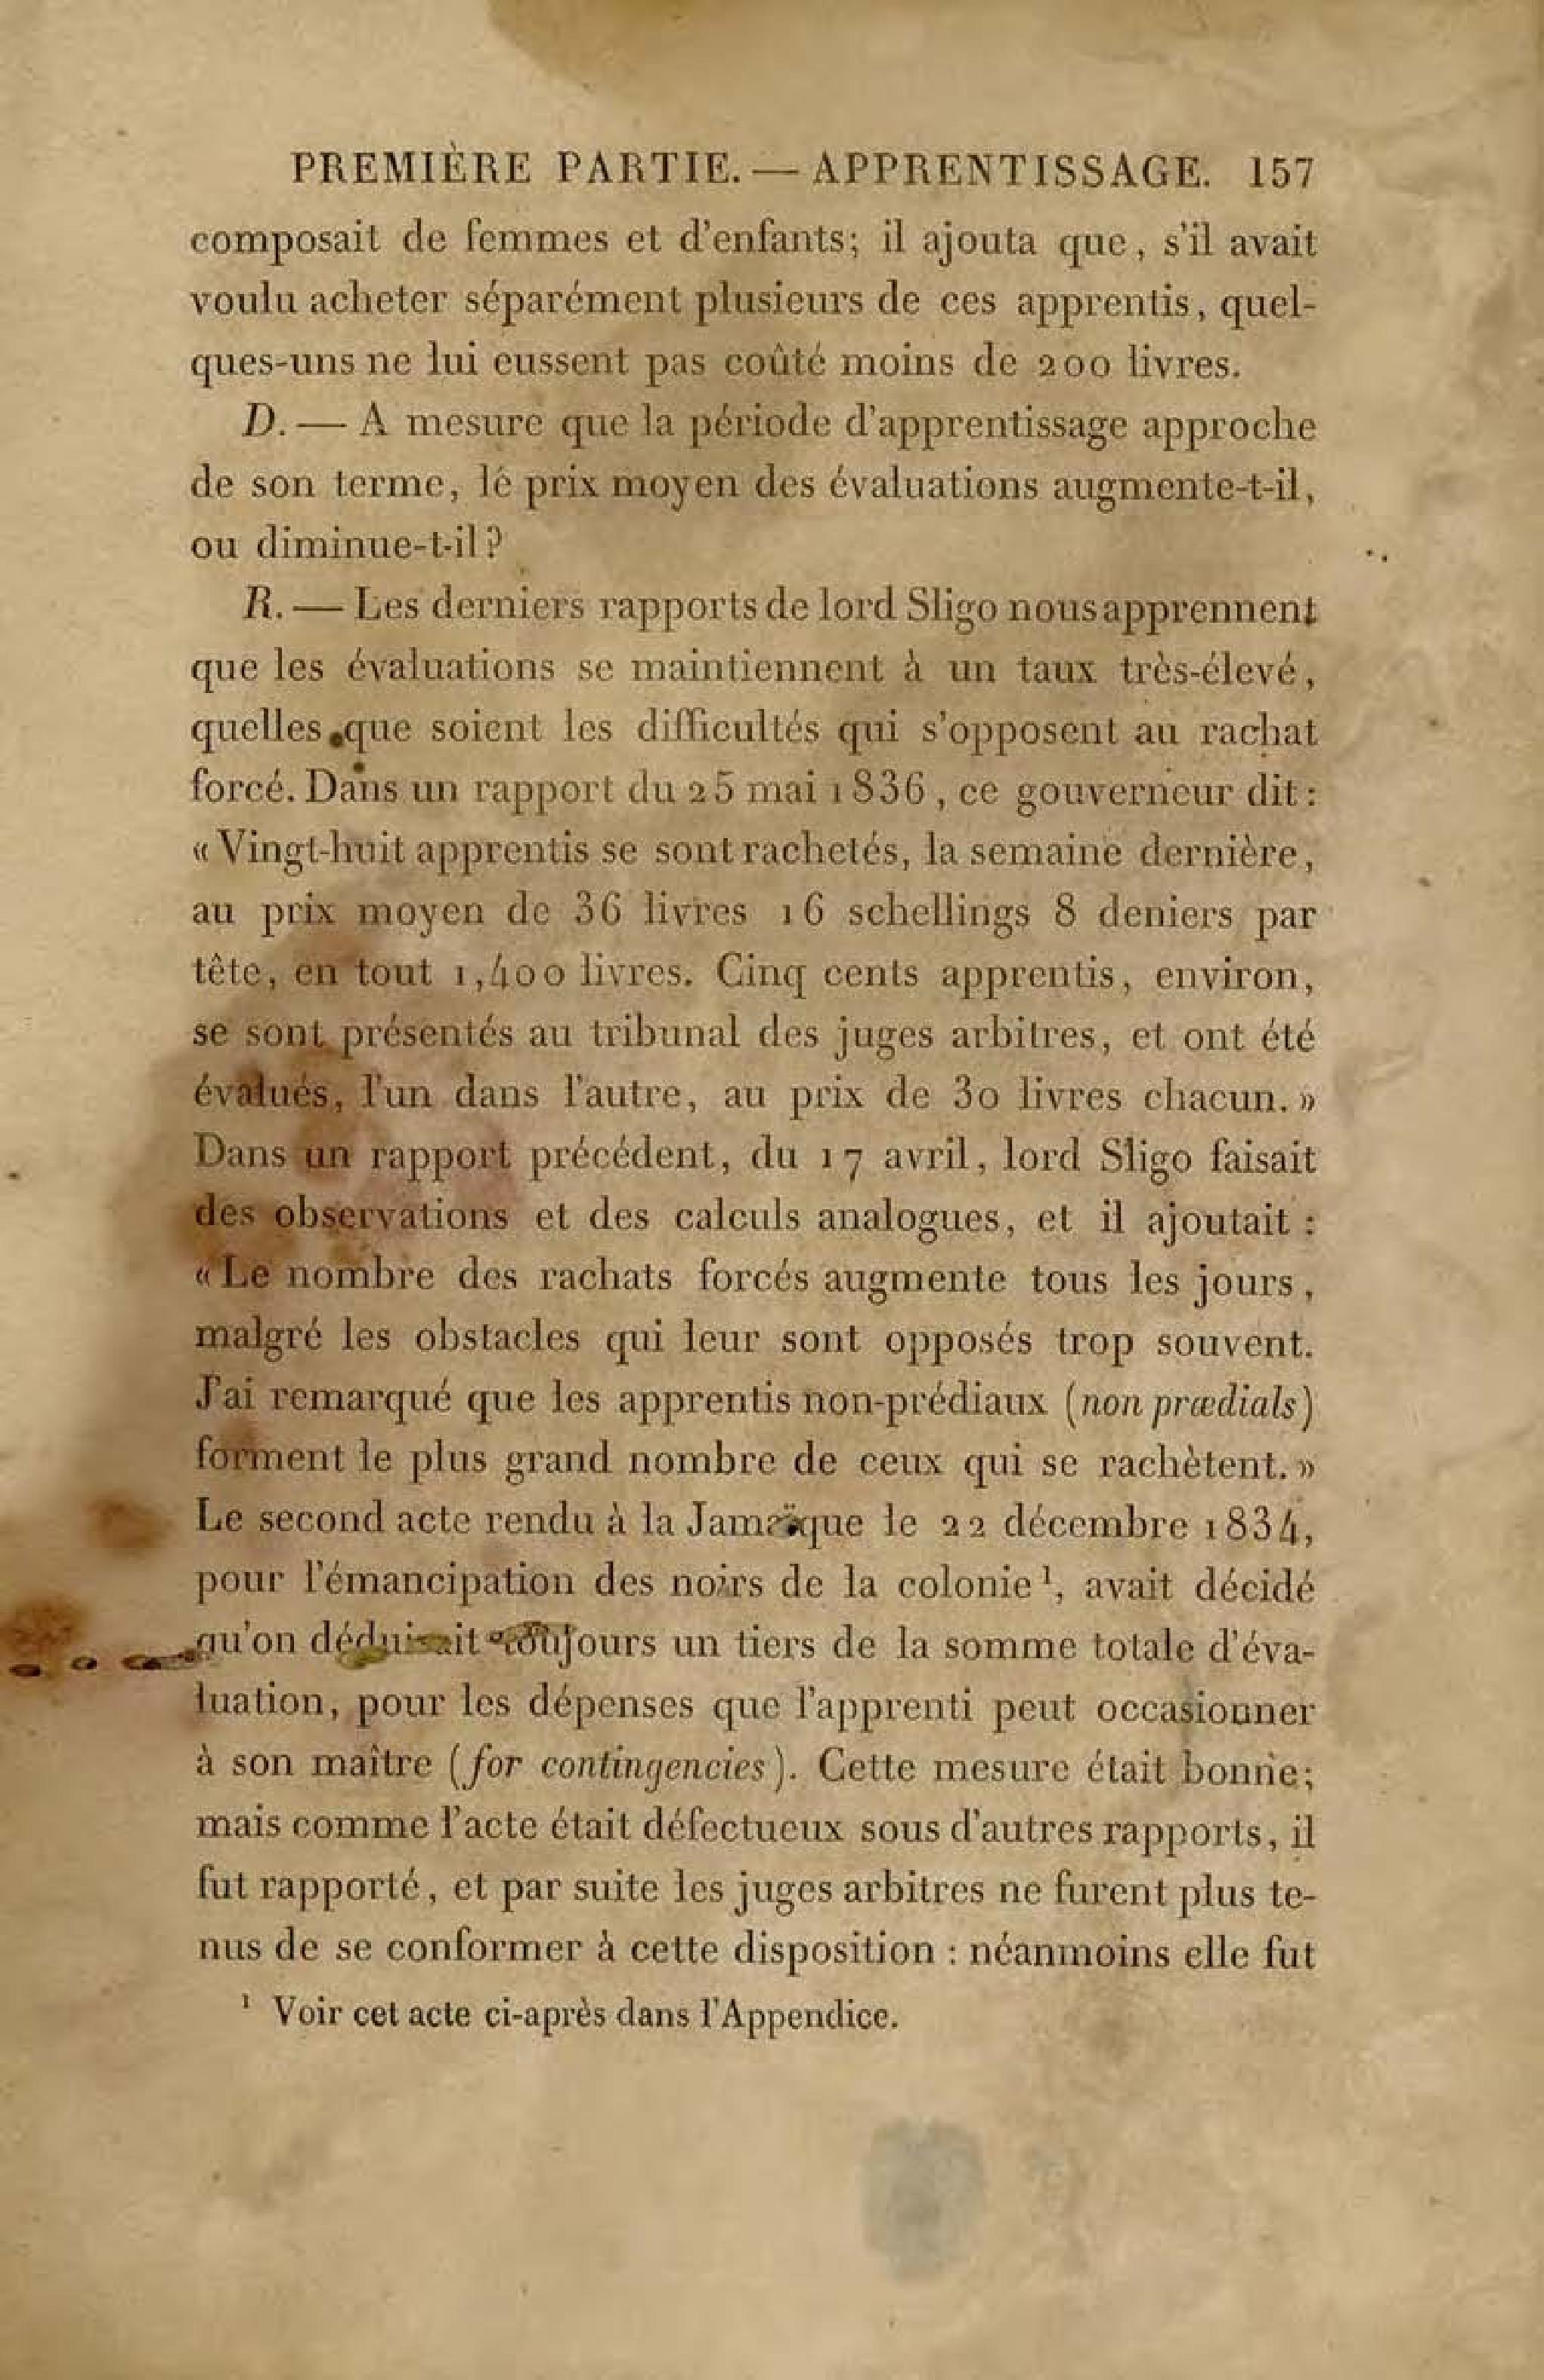 PREMIÈRE PARTIE. — APPRENTISSAGE. 157
composait de femmes et d'enfants; il ajouta que, s'il avait
voulu acheter séparément plusieurs de ces apprentis, quel-
ques-uns ne lui eussent pas coûté moins de 200 livres.
D. — A mesure que la période d'apprentissage approche
de son terme, le prix moyen des évaluations augmente-t-il,
ou diminue-t-il?
R. — Les derniers rapports de lord Sligo nous apprennent
que les évaluations se maintiennent à un taux très-élevé,
quelles que soient les difficultés qui s'opposent au rachat
forcé. Dans un rapport du 25 mai 1836, ce gouverneur dit:
« Vingt-huit apprentis se sont rachetés, la semaine dernière,
au prix moyen de 36 livres 16 schellings 8 deniers par
tête, en tout 1,400 livres. Cinq cents apprentis, environ,
se sont présentés au tribunal des juges arbitres, et ont été
évalués, l'un dans l'autre, au prix de 30 livres chacun. »
Dans un rapport précédent, du 17 avril, lord Sligo faisait
des observations et des calculs analogues, et il ajoutait :
« Le nombre des rachats forcés augmente tous les jours,
malgré les obstacles qui leur sont opposés trop souvent.
J'ai remarqué que les apprentis non-prédiaux (non prædials)
forment le plus grand nombre de ceux qui se rachètent. »
Le second acte rendu à la Jamaïque le 22 décembre 1834,
pour l'émancipation des noirs de la colonie 1, avait décidé
qu'on déduisait toujours un tiers de la somme totale d'éva-
luation, pour les dépenses que l'apprenti peut occasionner
à son maître (for contingencies). Cette mesure était bonne;
mais comme l'acte était défectueux sous d'autres rapports, il
fut rapporté, et par suite les juges arbitres ne furent plus te-
nus de se conformer à cette disposition : néanmoins elle fut
1 Voir cet acte ci-après dans l'Appendice.